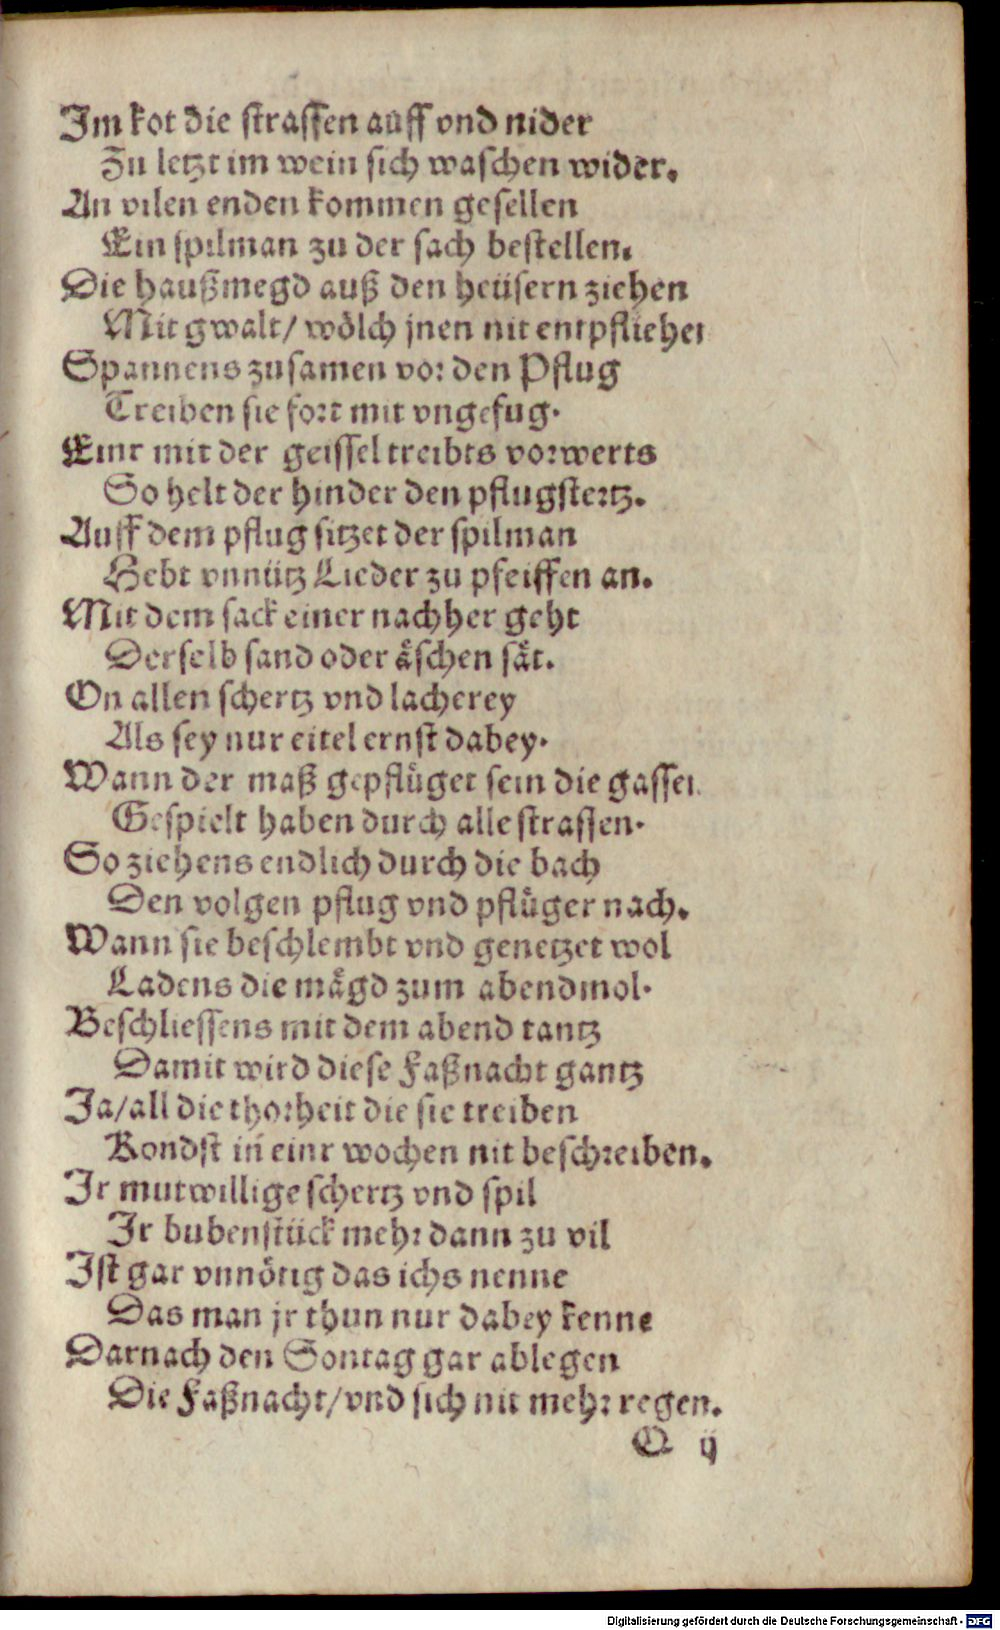 Im kot die strassen auff vnd nider
Zu letzt im wein sich waschen wider.
An vilen enden kommen gesellen
Ein spilman zu der sach bestellen.
Die haußmegd auß den heüsern ziehen
Mit gwalt/ wölch jnen nit entpfliehen
Spannens zusamen vor den Pflug
Treiben sie fort mit vngefug.
Einr mit der geissel treibts vorwerts
So helt der hinder den pflugstertz.
Auff dem pflug sitzet der spilman
Hebt vnnütz Lieder zu pfeiffen an.
Mit dem sack einer nachher geht
Derselb sand oder åschen såt.
On allen schertz vnd lacherey
Als sey nur eitel ernst dabey.
Wann der maß gepflüget sein die gassen
Gespielt haben durch alle strassen.
So ziehens endlich durch die bach
Den volgen pflug vnd pflüger nach.
Wann sie beschlembt vnd genetzet wol
Ladens die mågd zum abendmol.
Beschliessens mit dem abend tantz
Damit wird diese Faßnacht gantz
Ja/all die thorheit die sie treiben
Kondst in einr wochen nit beschreiben.
Ir mutwillige schertz vnd spil
Ir bubenstück mehr dann zu vil
Ist gar vnnötig das ichs nenne
Das man jr thun nur dabey kenne
Darnach den Sontag gar ablegen
Die Faßnacht/vnd sich nit mehr regen.
O ij
Digitalisierung gefördert durch die Deutsche Forschungsgemeinschaft - DFG